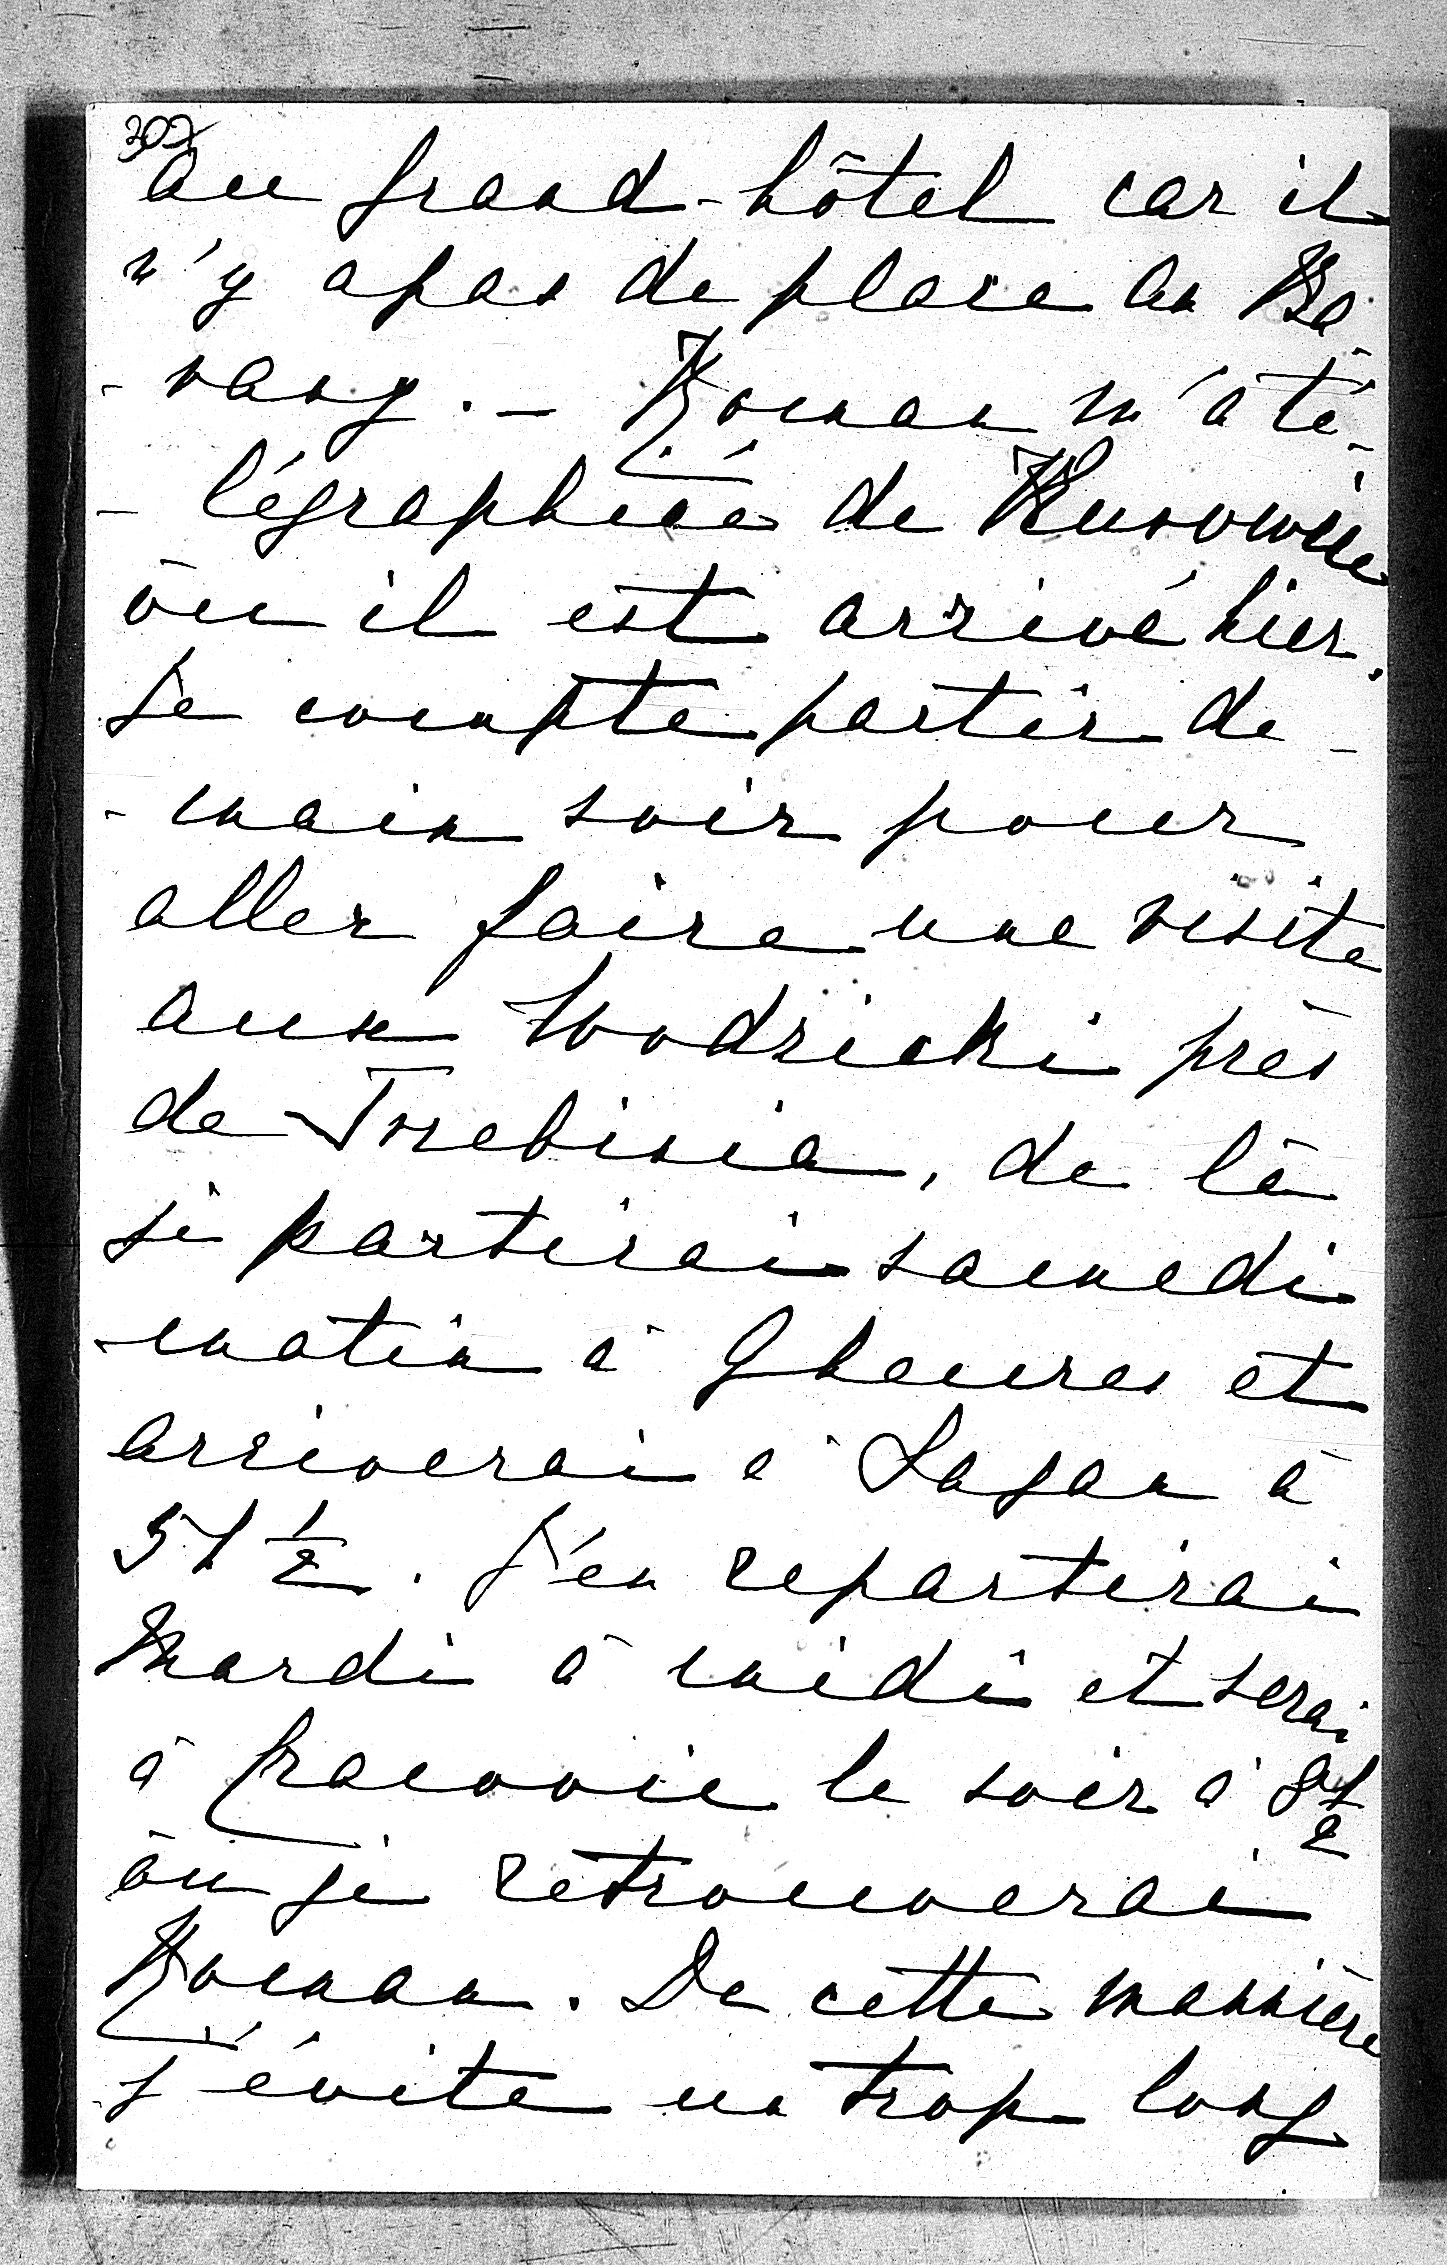 302
au grand-hôtel car il
n'y a pas de place au Ba
- rany. - Roman m'a té-
- légraphié de
où il est arrivé hier.
Je compte partir de-
- main soir pour
aller faire une visite
aux Wodzicki près
de Trzebinia, de là
je partirai samedi
matin à 9 heures et
arriverai à Sagan à
5 h ½. J'en repartirai
Mardi à midi et serai
à Cracovie le soir à 8 ½
où je retrouverai
Roman. De cette mannière
j'évite un trop long